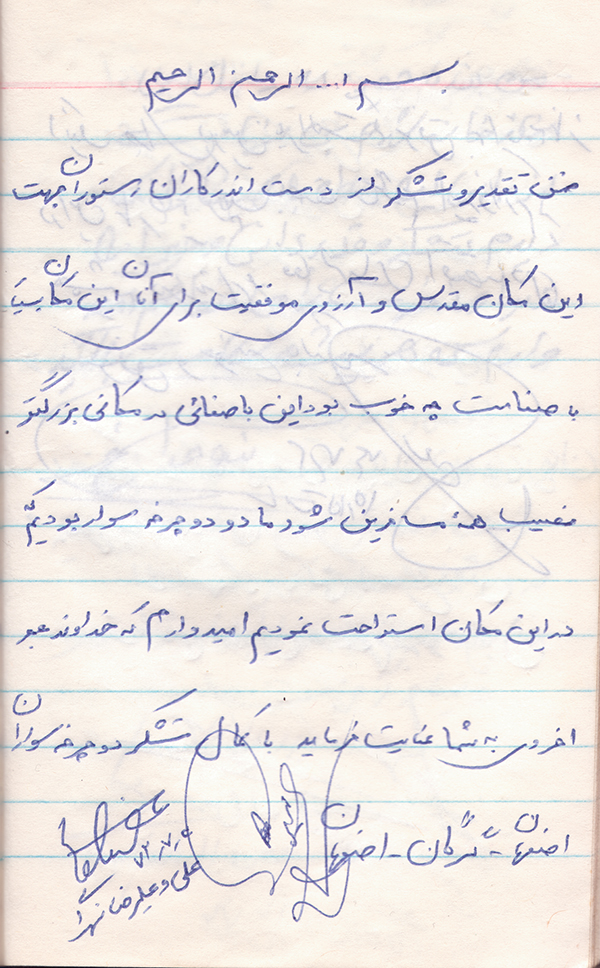 بسم ا... الرحمن الرحیم
ضمن تقدیر و تشکر از دست اندرکاران رستوران جهت
این مکان مقدس و آرزوی موفقیت برای آنان این مکان بسیار
با صفاست چه خوب بود این با صفائی در مکانی بزرگتر
نصیب همهٔ مسافرین شود ما دو دوچرخه سوار بودیم که
در این مکان استراحت نمودیم امیدوارم که خداوند عبو
اخروی به شما عنایت فرماید با کمال تشکر دوچرخه سواران
اصفهان - گرگان - اصفهان
علی و علیرضا